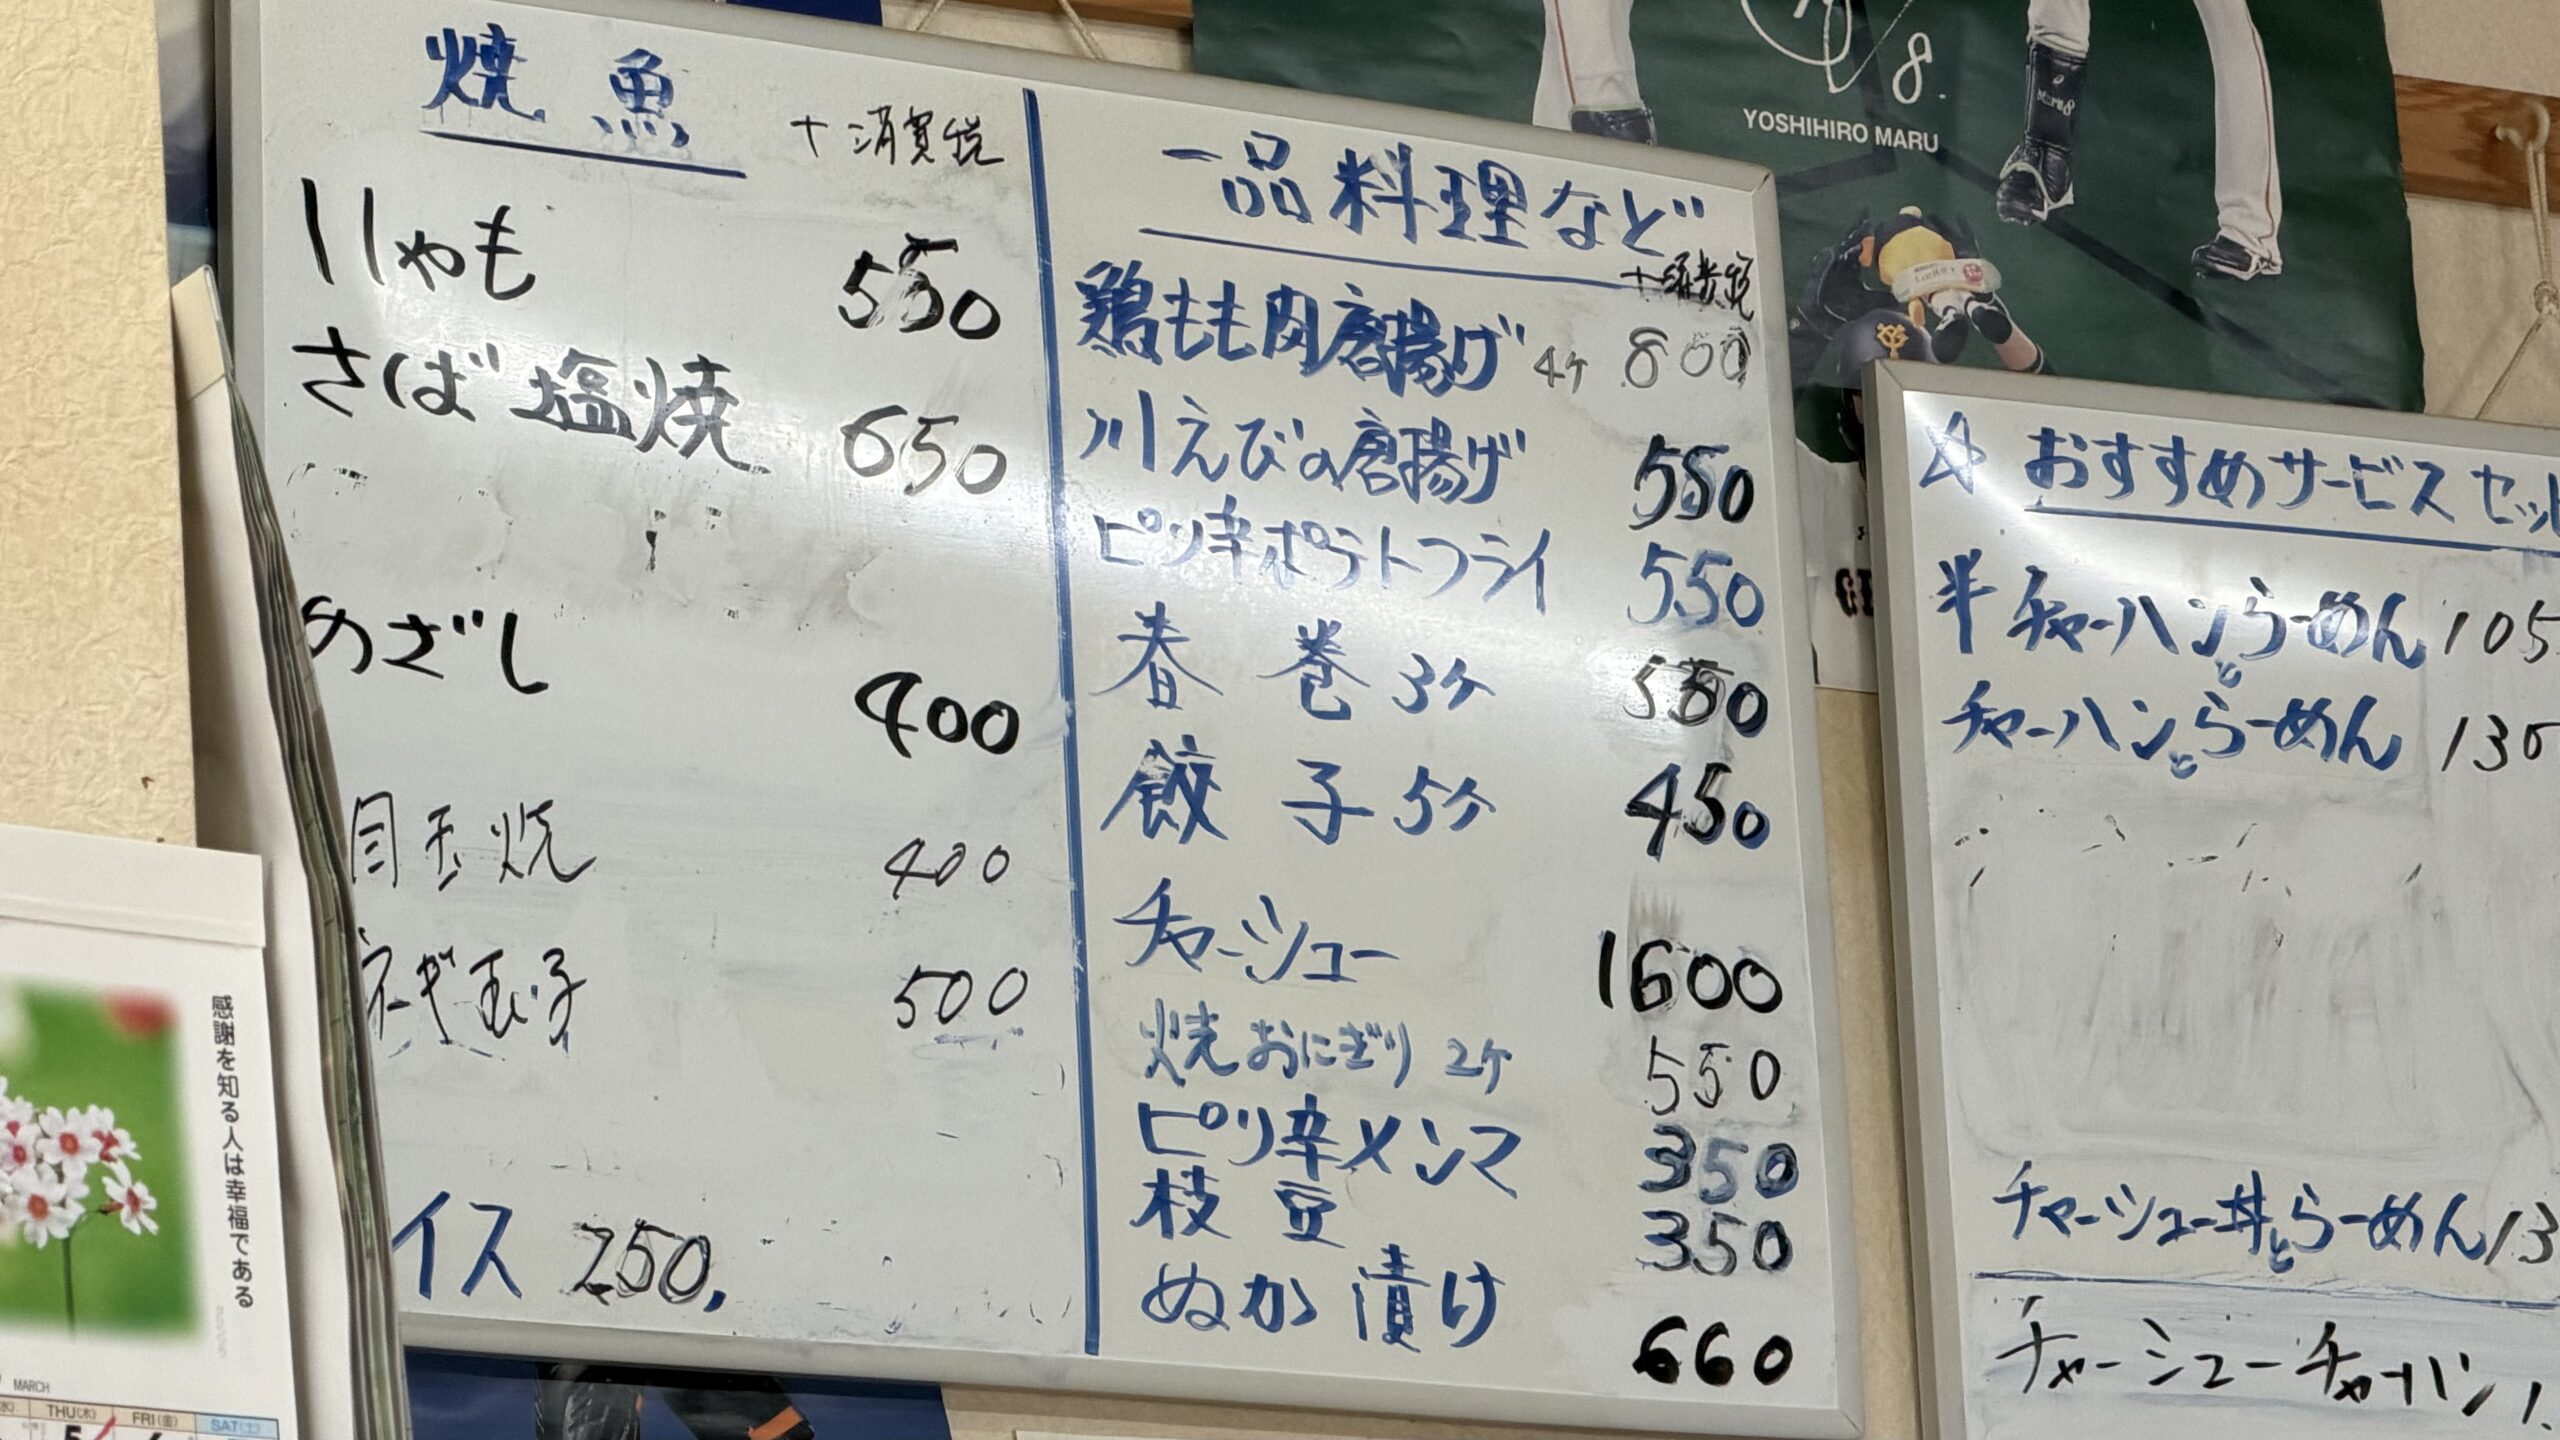 焼魚 +消費税
ししゃも 550
さば塩焼 650
めざし 400
目玉焼 400
ネギ玉子 500
イス 250,
一品料理など
+消費税
鶏もも肉唐揚げ 4ケ 800
川えびの唐揚げ 550
ピリ辛ポテトフライ 550
春巻 3ケ 550
餃子 5ケ 450
チャーシュー 1600
焼おにぎり 2ケ 550
ピリ辛メンマ 350
枝豆 350
ぬか漬け 660
8.
YOSHIHIRO MARU
☆おすすめサービスセット
半チャーハンとらーめん 105
チャーハンとらーめん 130
チャーシュー丼とらーめん 13
チャーシューチャーハン 1.
感謝を知る人は幸福である
MARCH
THU(木) FRI(金) SAT(土)
5